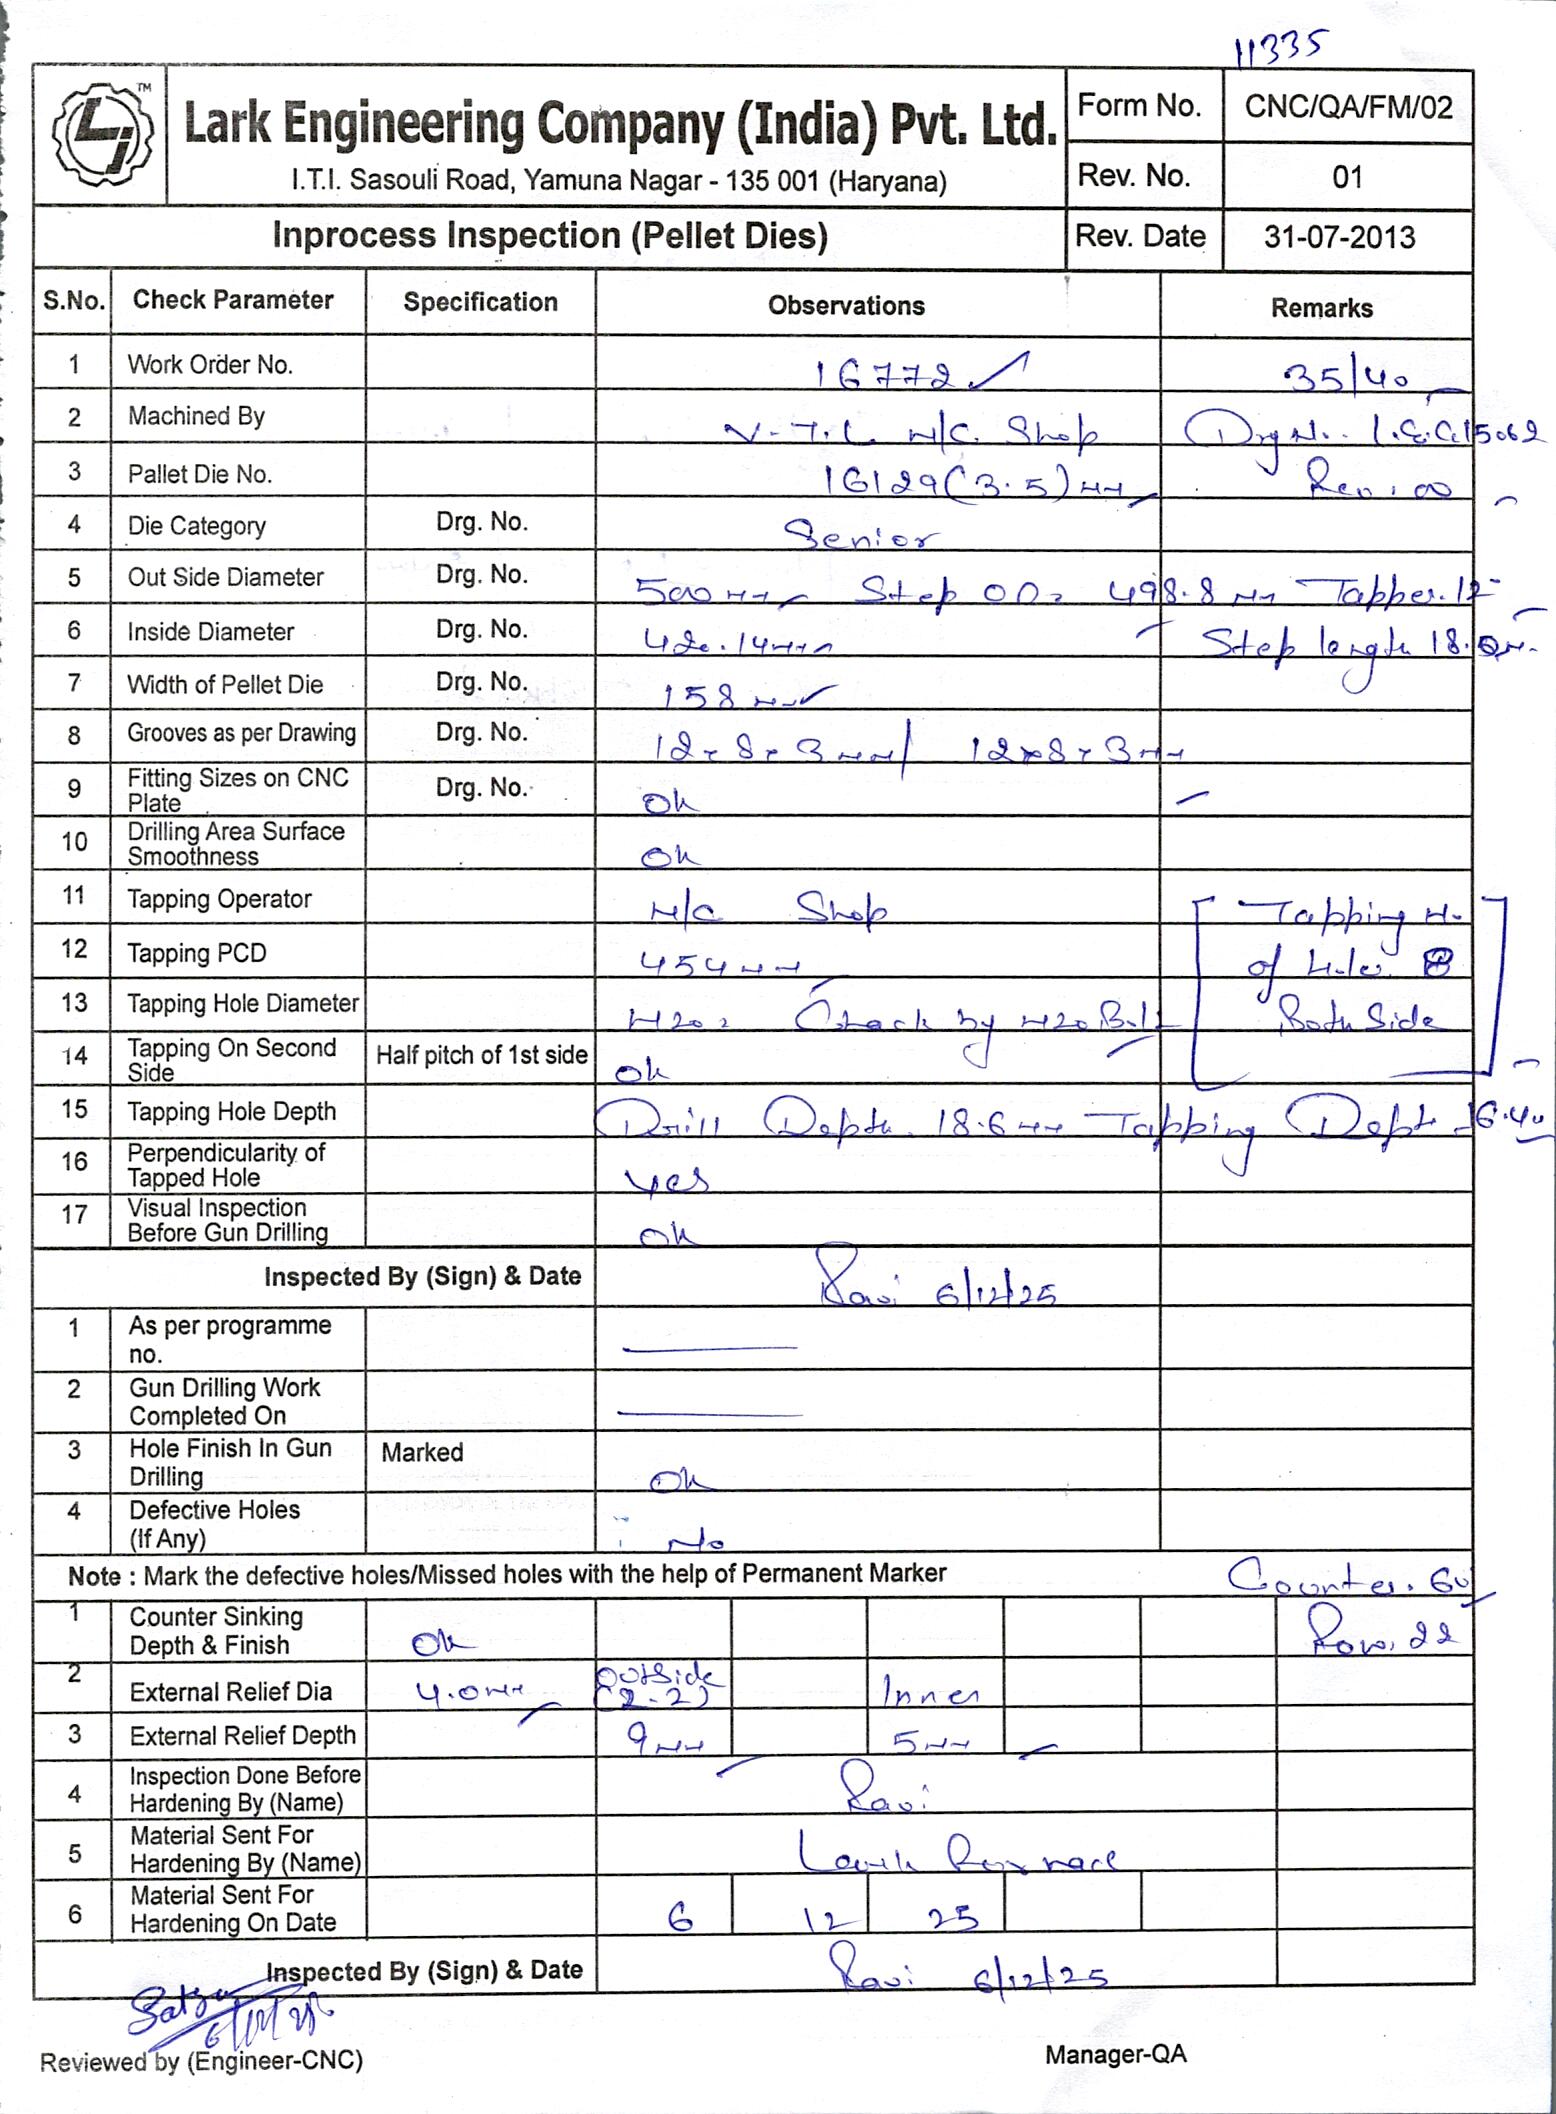 11335
TM
Lark Engineering Company (India) Pvt. Ltd.
I.T.I. Sasouli Road, Yamuna Nagar - 135 001 (Haryana)
Form No. CNC/QA/FM/02
Rev. No. 01
Inprocess Inspection (Pellet Dies) Rev. Date 31-07-2013
S.No. Check Parameter Specification Observations Remarks
1 Work Order No. 16772 35/40
2 Machined By V.T.L M/C. Shop Drg No. 15062
3 Pallet Die No. 16129(3.5)mm Rev. 00
4 Die Category Drg. No. Senior
5 Out Side Diameter Drg. No. 500mm Step OD= 498.8 mm Tapper. 12
6 Inside Diameter Drg. No. 420.14mm Step length 18.
7 Width of Pellet Die Drg. No. 158 mm
8 Grooves as per Drawing Drg. No. 12x8x3mm/ 12x8x3mm
9 Fitting Sizes on CNC Plate Drg. No. Ok
10 Drilling Area Surface Smoothness Ok
11 Tapping Operator M/C Shop Tapping
12 Tapping PCD 454mm of Hole 8
13 Tapping Hole Diameter M20 = Check by M20 Bolt Both Side
14 Tapping On Second Side Half pitch of 1st side Ok
15 Tapping Hole Depth Drill Depth. 18.6mm Tapping Depth 16.40
16 Perpendicularity of Tapped Hole Yes
17 Visual Inspection Before Gun Drilling Ok
Inspected By (Sign) & Date Ravi 6/12/25
1 As per programme no.
2 Gun Drilling Work Completed On
3 Hole Finish In Gun Drilling Marked Ok
4 Defective Holes (If Any) No
Note : Mark the defective holes/Missed holes with the help of Permanent Marker Counter. 60
1 Counter Sinking Depth & Finish Ok Row. 22
2 External Relief Dia 4.0mm Outside (2-2) Inner
3 External Relief Depth 9mm 5mm
4 Inspection Done Before Hardening By (Name) Ravi
5 Material Sent For Hardening By (Name)
6 Material Sent For Hardening On Date 6 12 25
Inspected By (Sign) & Date Ravi 6/12/25
Reviewed by (Engineer-CNC) Manager-QA